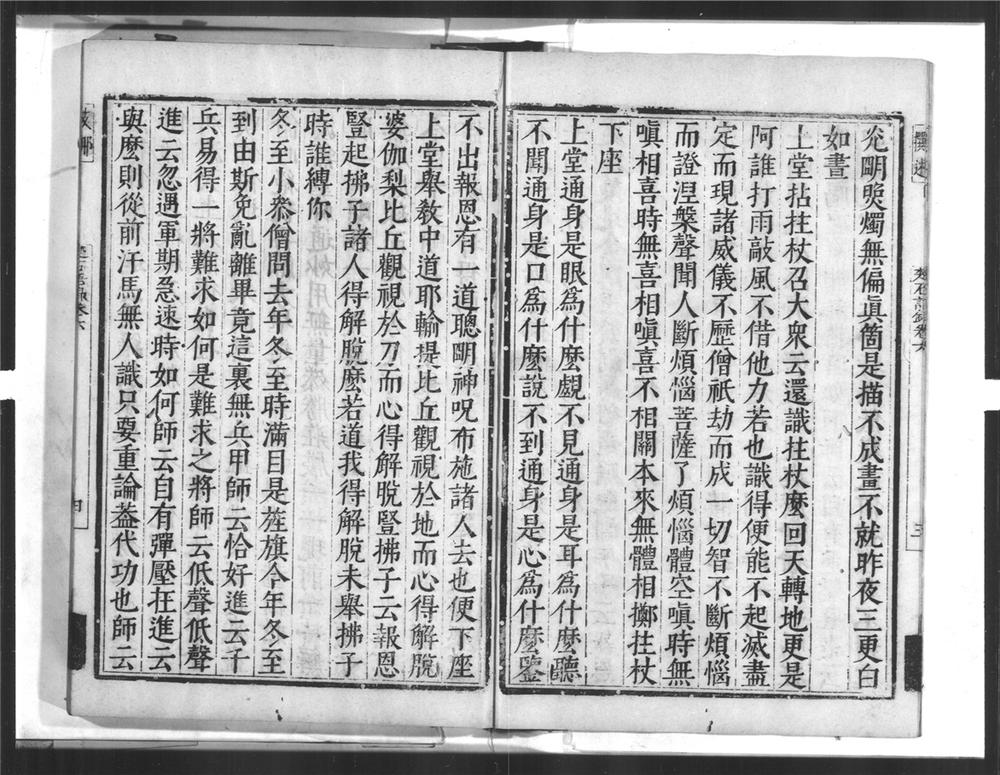 光明煥燭無偏眞箇是描不成畫不就昨夜三更白
如晝
上堂拈拄杖召大衆云還識拄杖麼回天轉地更是
阿誰打雨敲風不借他力若也識得便能不起滅盡
定而現諸威儀不歷僧祇劫而成一切智不斷煩惱
而證涅槃聲聞人斷煩惱菩薩了煩惱體空嗔時無
嗔相喜時無喜相嗔喜不相關本來無體相擲拄杖
下座
上堂通身是眼爲什麼覷不見通身是耳爲什麼聽
不聞通身是口爲什麼說不到通身是心爲什麼鑒
不出報恩有一道聰明神呪布施諸人去也便下座
上堂舉教中道耶輸提比丘觀視於地而心得解脫
婆伽梨比丘觀視於刀而心得解脫豎拂子云報恩
豎起拂子諸人得解脫麼若道我得解脫未舉拂子
時誰縛你
冬至小參僧問去年冬至時滿目是旌旗今年冬至
到由斯免亂離畢竟這裏無兵甲師云恰好進云千
兵易得一將難求如何是難求之將師云低聲低聲
進云忽遇軍期急速時如何師云自有彈壓在進云
與麼則從前汗馬無人識只要重論蓋代功也師云